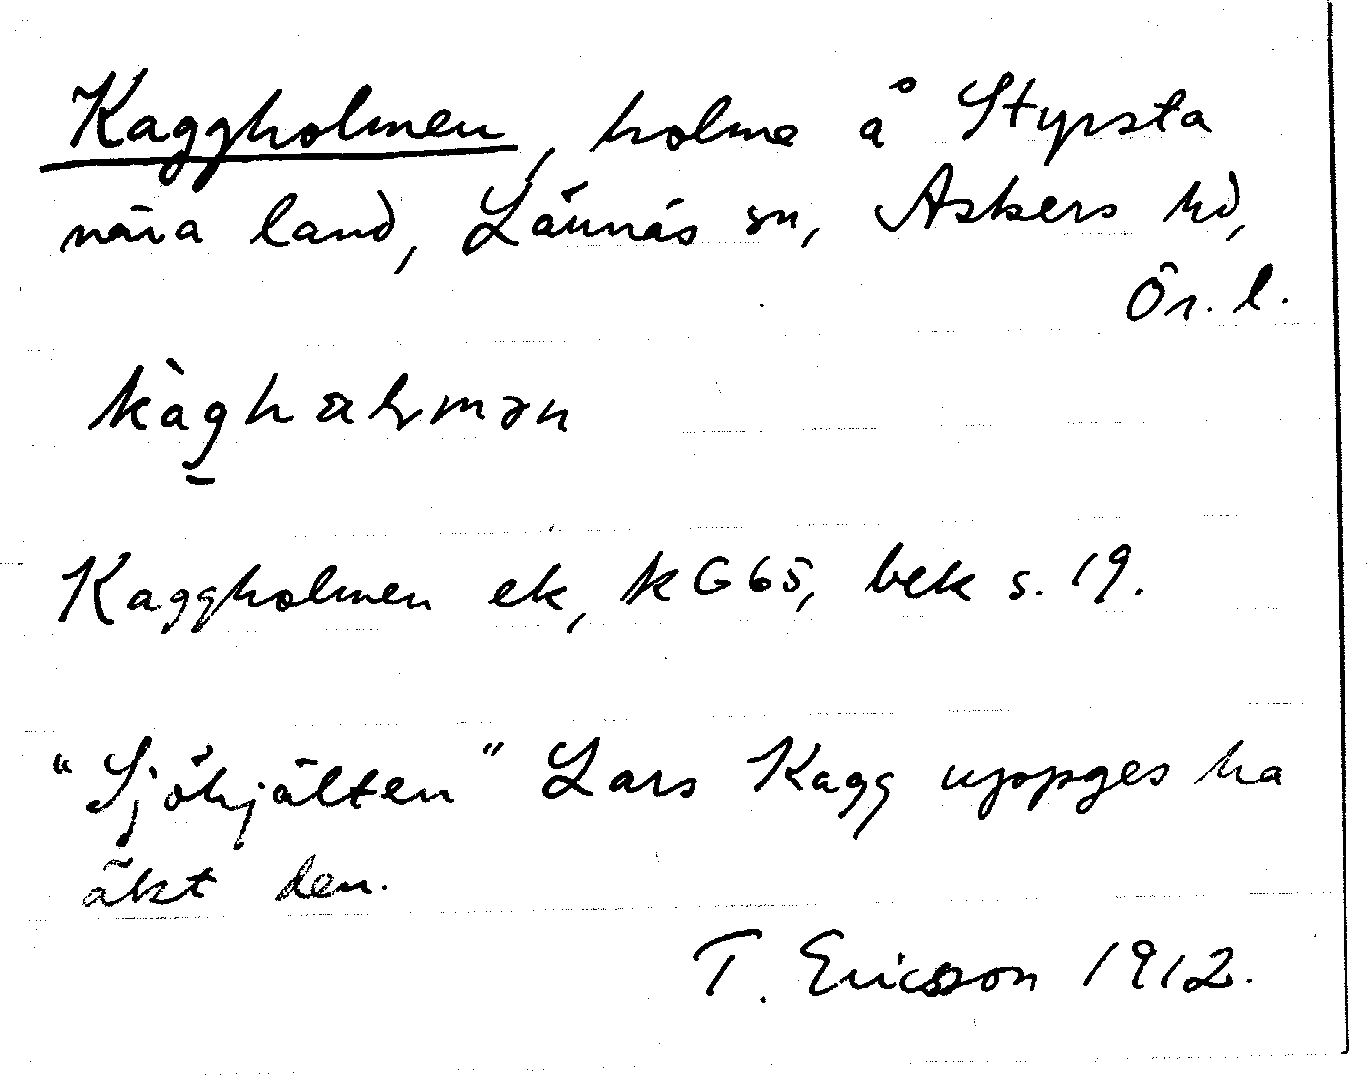 Kaggholmen, holme å Styrsta
nära land, Lännäs sn, Askers hd,
Ör. l.
kàghαlmən
Kaggholmen ek, kG65, bek s. 19.
"Sjöhjälten" Lars Kagg uppges ha
äkt den.
T. Ericsson 1912.